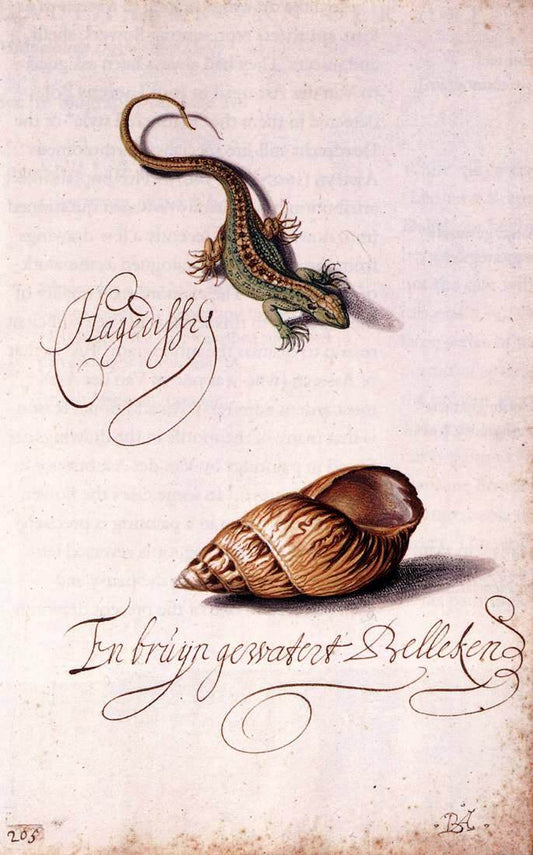 Hagedisse
En brúyn gewatert Belleken
205
BA